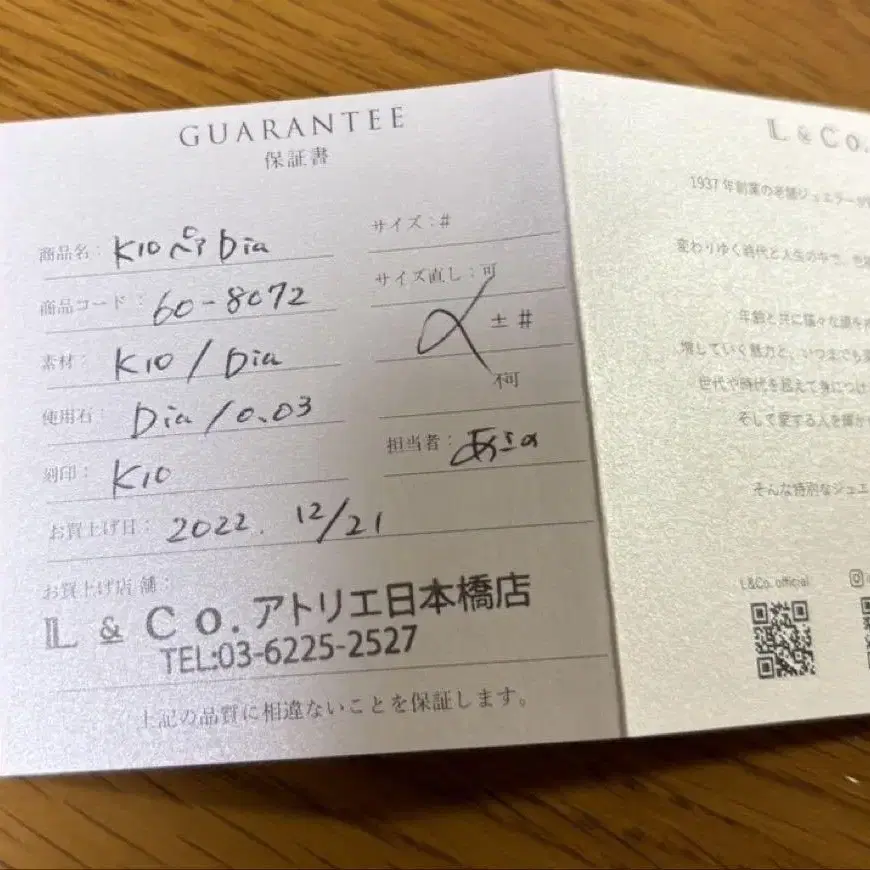 GUARANTEE
保証書
商品名: K10 ペア Dia
商品コード: 60-8072
素材: K10 / Dia
使用石: Dia / 0.03
刻印: K10
お買上げ日: 2022. 12/21
お買上げ店舗:
L & Co. アトリエ日本橋店
TEL:03-6225-2527
上記の品質に相違ないことを保証します。
サイズ:#
サイズ直し:可
±#
不可
担当者:
L & Co.
1937年創業の老舗ジュエラーが
変わりゆく時代と人生の中で、
年齢と共に様々な
増していく魅力と、いつまでも
世代や時代を超えて身につけ
そして愛する人を輝か
そんな特別なジュエ
L&Co. official